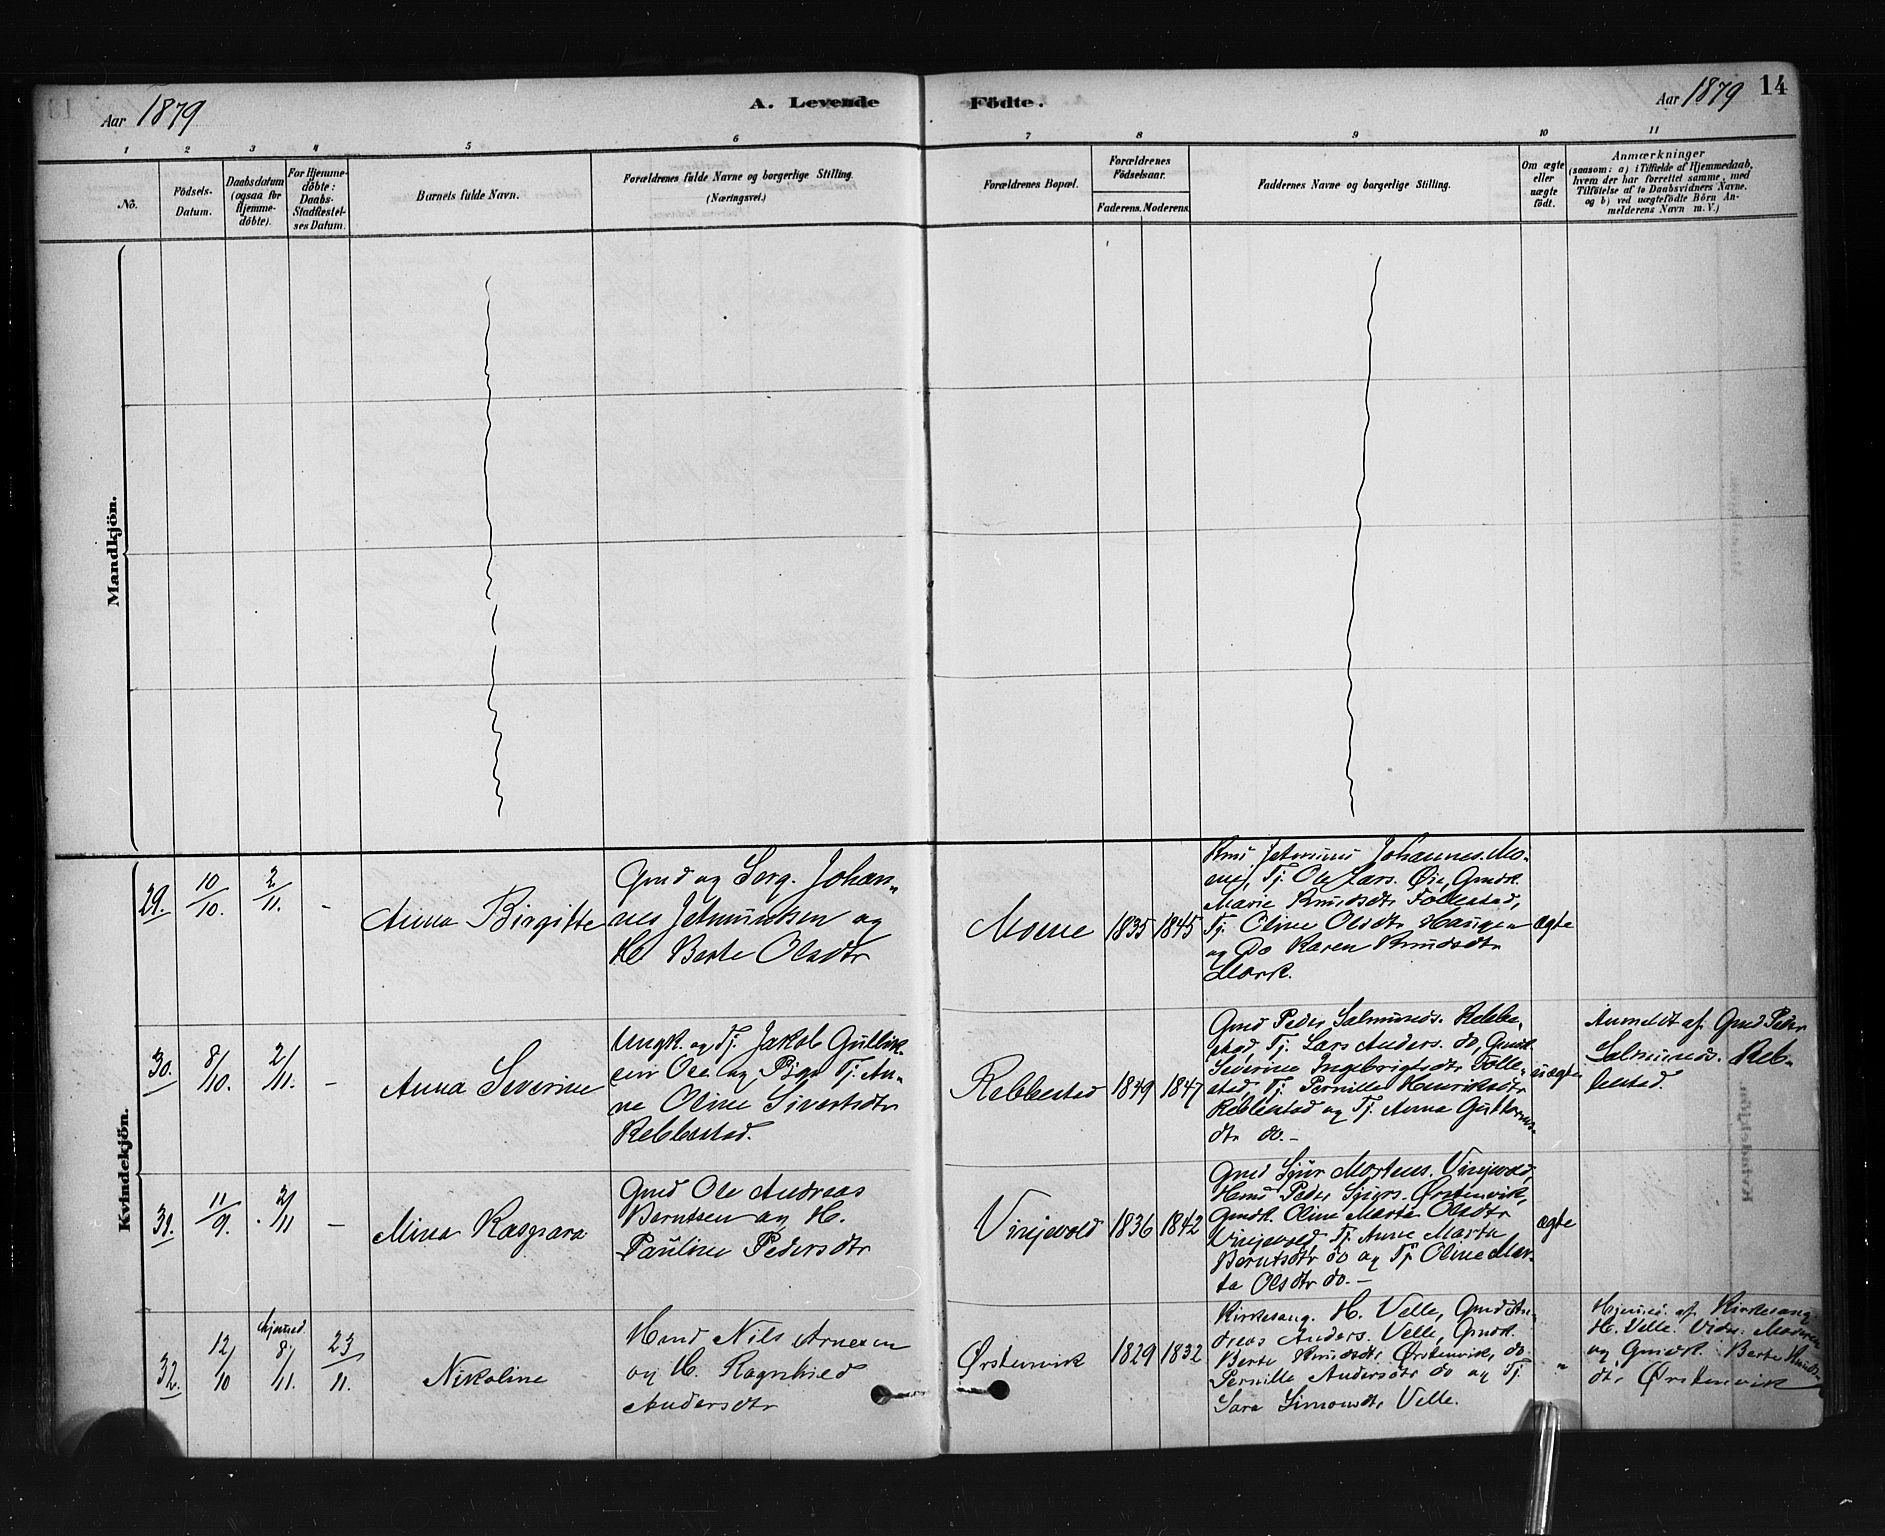 Aar 1879
A. Levende Födte.
Aar 1879 14
1 2 3 4 5 6 7 8 9 10 11
No.
Födsels-
Datum.
Daabsdatum
(ogsaa for
Hjemme-
döbte).
For Hjemme-
döbte:
Daabs-
Stadfestel-
ses Datum.
Barnets fulde Navn.
Forældrenes fulde Navne og borgerlige Stilling.
(Næringsvei.)
Forældrenes Bopæl.
Forældrenes
Födselsaar.
Faderens. Moderens.
Faddernes Navne og borgerlige Stilling.
Om ægte
eller
uægte
födt.
Anmærkninger
(saasom: a) i Tilfælde af Hjemmedaab,
hvem der har forrettet samme, med
Tilföielse af to Daabsvidners Navne.
og b) ved uægtefödte Börn An-
melderens Navn m.V.)
Mandkjön.
Kvindekjön.
29.
10/10.
2/11.
-
Anna Birgitte
Gmd og Serg. Johan-
nes Jetmundsen og
H. Berte Olsdtr
Moene
1835
1845
Johannes. Mo-
ene, Tj. Ole Lars. Øie, Gmdk.
Marie Knudsdtr Follestad,
Tj. Oline Olsdtr Haugen
og Do Karen Knudsdtr
Mork.
ægte
30.
8/10.
2/11.
-
Anna Severine
Ungk. og Tj. Jakob Gullik-
sen Ose og Pige Tj. An-
ne Oline Sivertsdtr
Rebbestad.
Rebbestad
1849
1847
Gmd Peder Salmunds. Rebbe-
stad, Tj. Lars Anders. do, Gmdk.
Severine Ingebrigtsdtr Folle-
stad, Tj. Pernille Henriksdtr
Rebbestad og Tj. Anna Guttorms-
dtr do.-
uægte
Anmeldt af Gmd Peder
Salmunds. Reb-
bestad.
31.
11/9.
2/11
-
Mina Kaspara
Gmd Ole Andreas
Berntsen og H.
Pauline Pedersdtr
Vinjevold
1836
1842
Gmd Sjur Mortens. Vinjevold,
Hmd Peder Sjurs. Ørstenvik,
Gmdk. Oline Marta Olsdtr
Vinjevold, Tj. Anne Marta
Berntsdtr do og Tj. Oline Mar-
ta Olsdtr do.-
ægte
32.
12/10
hjemmed.
8/11.
23/11.
Nikoline
Hmd Nils Arnesen
og H. Ragnhild
Andersdtr
Ørstenvik
1829
1832
Kirkesang. H. Velle, Gmd An-
dreas Anders. Velle, Gmdk.
Berte Knudsdtr Ørstenvik, do
Pernille Andersdtr do og Tj.
Sara Simonsdtr Velle.
"
Hjemmed. af Kirkesang.
H. Velle. Vidn. Moderen
og Gmdk. Berte Knuds-
dtr Ørstenvik